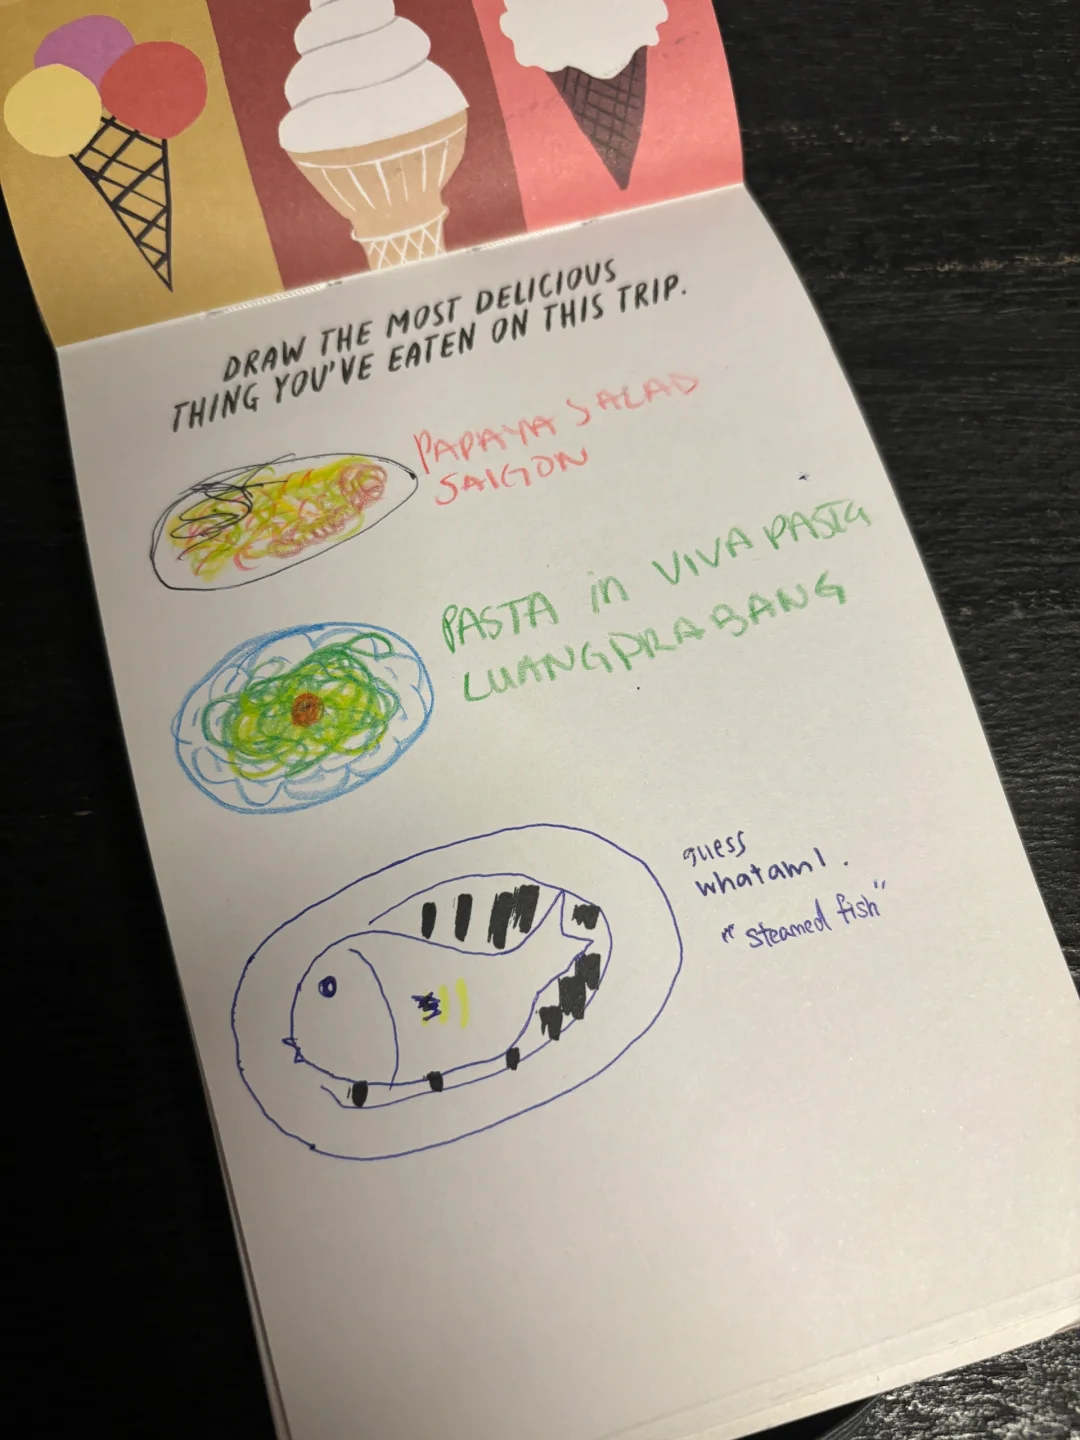 DRAW THE MOST DELICIOUS
THING YOU'VE EATEN ON THIS TRIP.
PAPAYA SALAD
SAIGON
PASTA in VIVA PASTA
LUANGPRABANG
guess
whatamI.
"steamed fish"